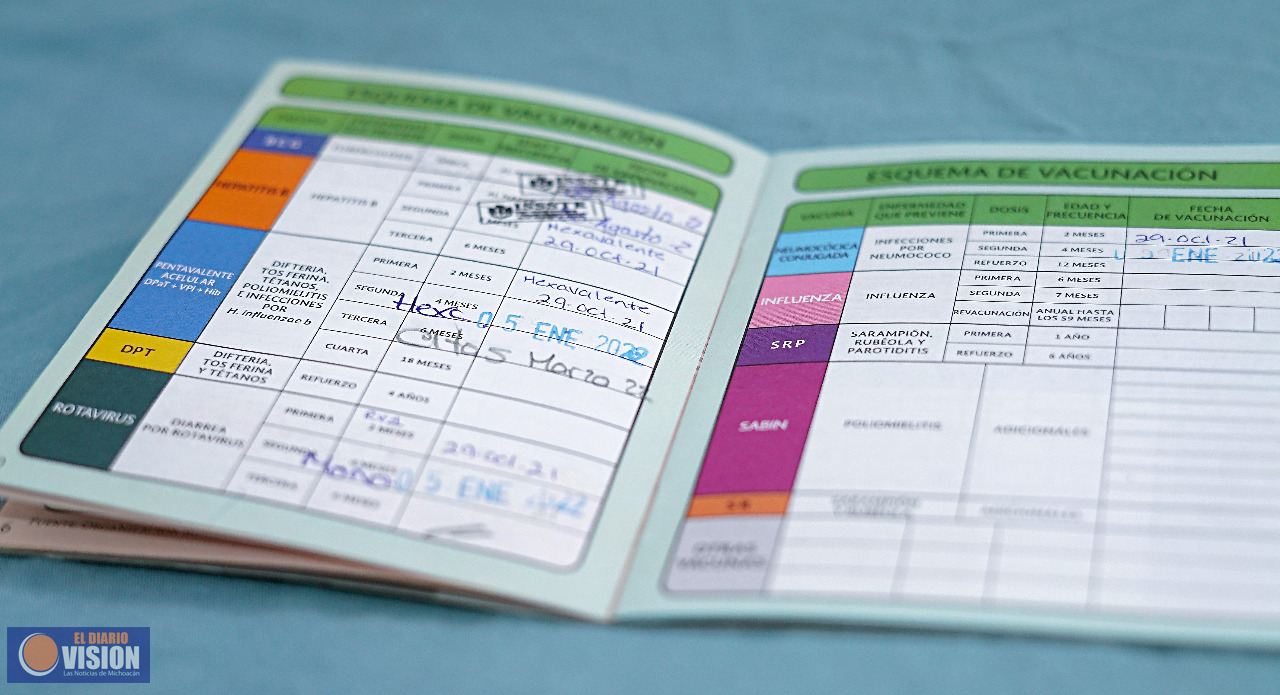 ESQUEMA DE VACUNACIÓN
B C G
TUBERCULOSIS
ÚNICA
HEPATITIS B
HEPATITIS B
PRIMERA
ISSSTE
Agosto 2
SEGUNDA
ISSSTE
Agosto 2
TERCERA
6 MESES
Hexavalente
29.oct.21
PENTAVALENTE
ACELULAR
DPaT + VPI + Hib
DIFTERIA,
TOS FERINA,
TÉTANOS,
POLIOMIELITIS
E INFECCIONES
POR
H. influenzae b
PRIMERA
2 MESES
Hexavalente
29.oct.21
SEGUNDA
4 MESES
Hexa
0 5 ENE 2022
TERCERA
6 MESES
5 Marzo 22
CUARTA
18 MESES
DPT
DIFTERIA,
TOS FERINA
Y TÉTANOS
REFUERZO
4 AÑOS
ROTAVIRUS
DIARREA
POR ROTAVIRUS
PRIMERA
2 MESES
29.oct.21
SEGUNDA
0 5 ENE 2022
TERCERA
ESQUEMA DE VACUNACIÓN
VACUNA
ENFERMEDAD
QUE PREVIENE
DOSIS
EDAD Y
FRECUENCIA
FECHA
DE VACUNACIÓN
NEUMOCÓCICA
CONJUGADA
INFECCIONES
POR
NEUMOCOCO
PRIMERA
2 MESES
29.oct.21
SEGUNDA
4 MESES
0 5 ENE 2022
REFUERZO
12 MESES
INFLUENZA
INFLUENZA
PRIMERA
6 MESES
SEGUNDA
7 MESES
REVACUNACIÓN
ANUAL HASTA
LOS 59 MESES
S R P
SARAMPIÓN,
RUBÉOLA Y
PAROTIDITIS
PRIMERA
1 AÑO
REFUERZO
6 AÑOS
SABIN
POLIOMIELITIS
ADICIONALES
S R
ADICIONALES
OTRAS
VACUNAS
EL DIARIO
VISION
Las Noticias de Michoacán